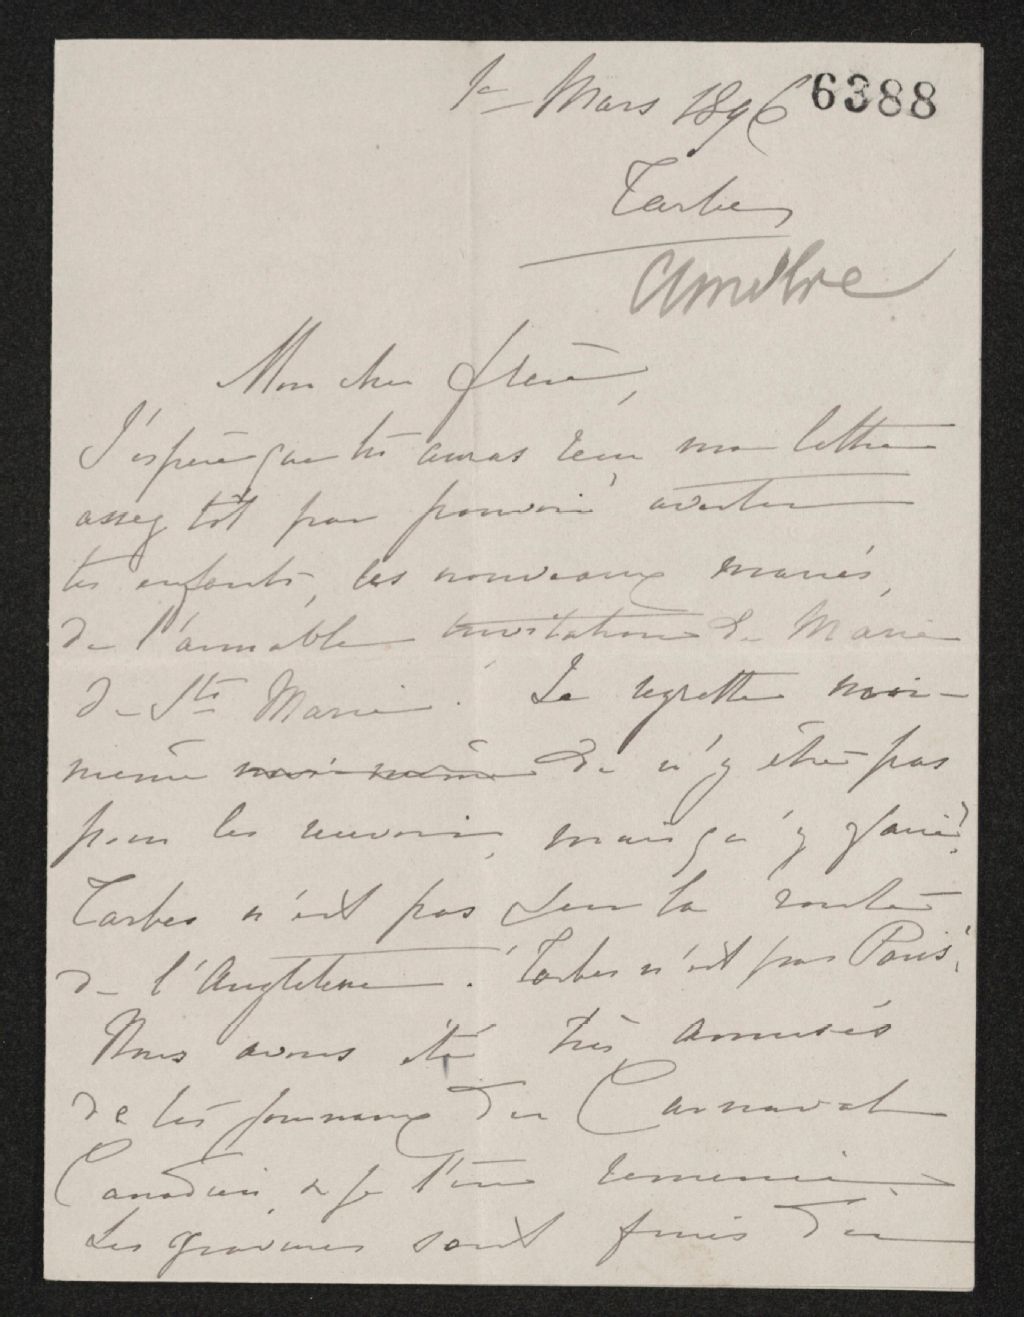 1er Mars 1896 6388
Tarbes
Mon cher frère,
J'espère que tu auras reçu ma lettre
assez tôt pour pouvoir avertir
tes enfants, les nouveaux mariés,
de l'aimable invitation de Marie
de Ste Marie. Je regrette moi-
même moi-même de n'y être pas
pour les recevoir, mais qu'y faire?
Tarbes n'est pas sur la route
de l'Angleterre. Tarbes n'est pas Paris.
Nous avons été très amusés
de tes journaux du Carnaval
Canadien, & je t'en remercie
Les gravures sont finies d'un